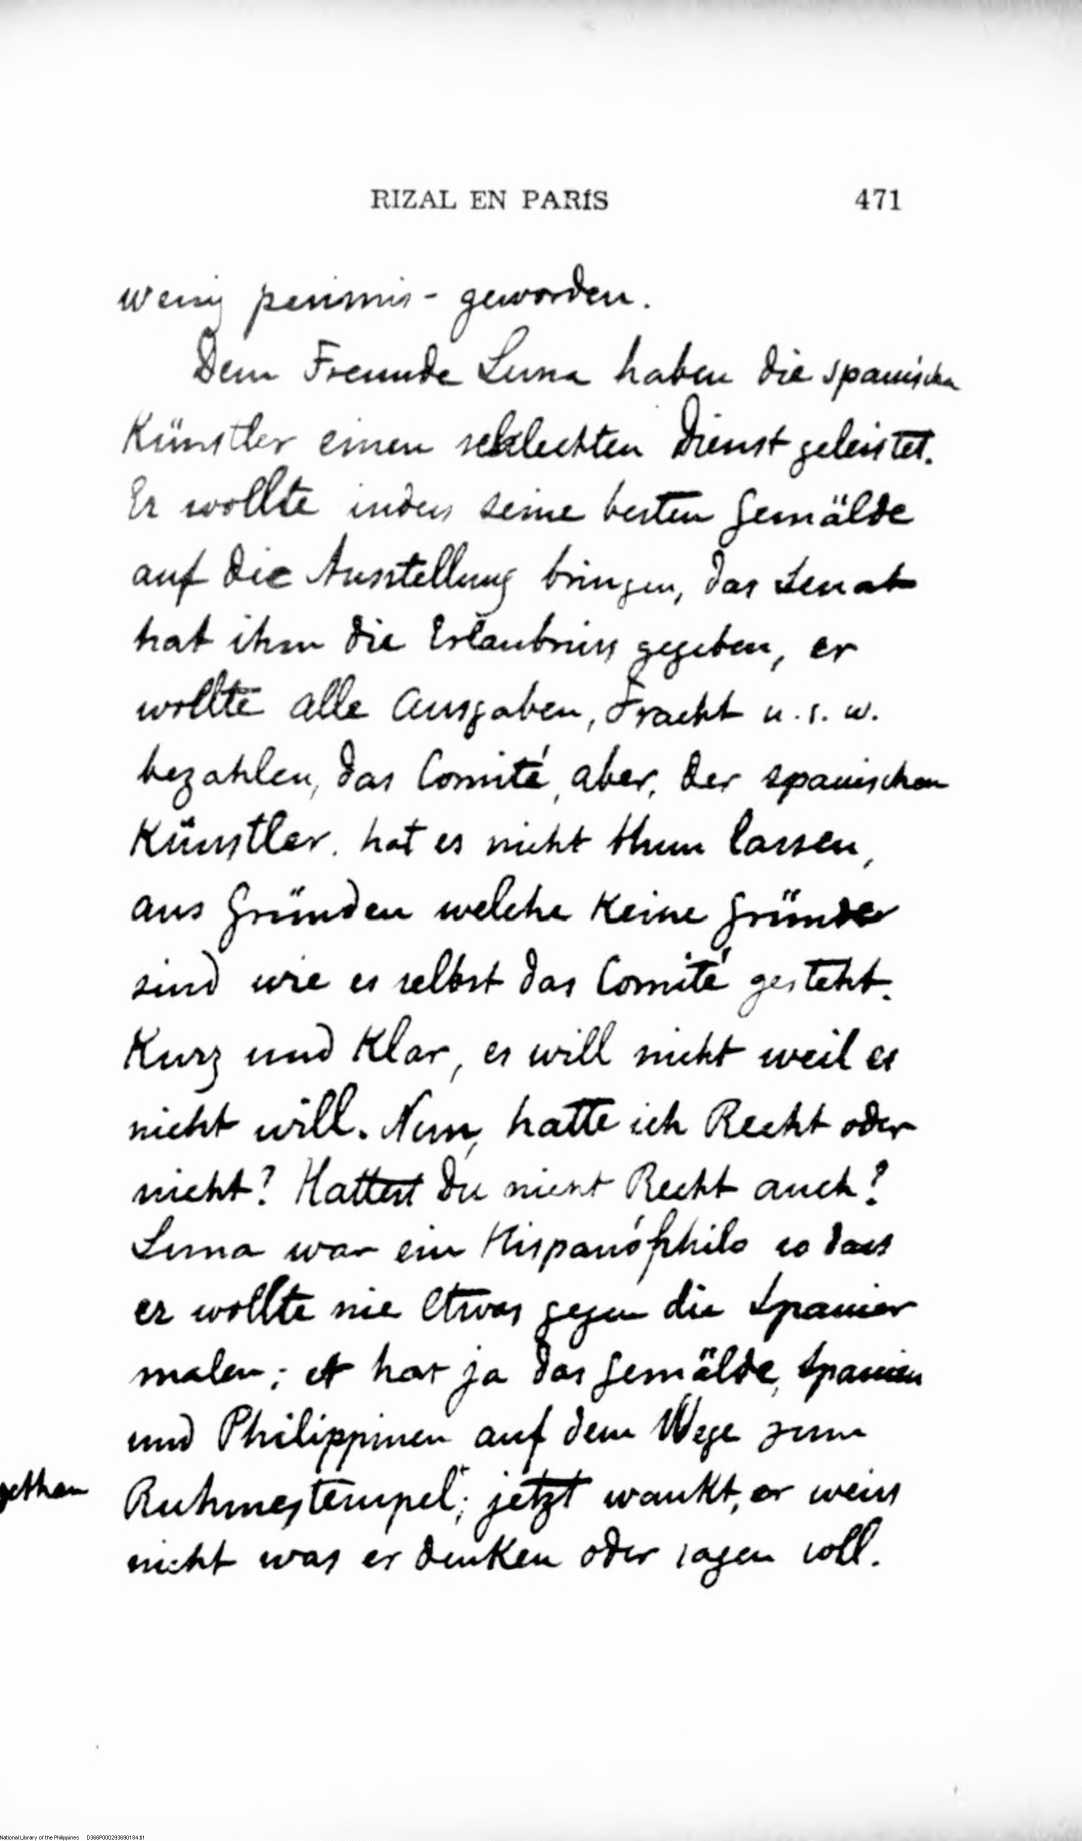 RIZAL EN PARÍS 471
wenig pessimis- geworden.
Dem Freunde Luna haben die spanischen
Künstler einen schlechten Dienst geleistet.
Er wollte indess seine besten Gemälde
auf die Ausstellung bringen, das Senat
hat ihm die Erlaubniss gegeben, er
wollte alle Ausgaben, Fracht u. s. w.
bezahlen, das Comité, aber, der spanischen
Künstler. hat es nicht thun lassen,
aus Gründen welche Keine Gründe
sind wie es selbst das Comité gesteht.
Kurz und Klar, es will nicht weil es
nicht will. Nun, hatte ich Recht oder
nicht? Hattest Du nicht Recht auch?
Luna war ein Hispanóphilo so dass
er wollte nie Etwas gegen die Spanier
malen; er hat ja das Gemälde, Spanien
und Philippinen auf dem Wege zum
gethan Ruhmestempel"; jetzt wankt, er weiss
nicht was er denken oder sagen soll.
National Library of the Philippines